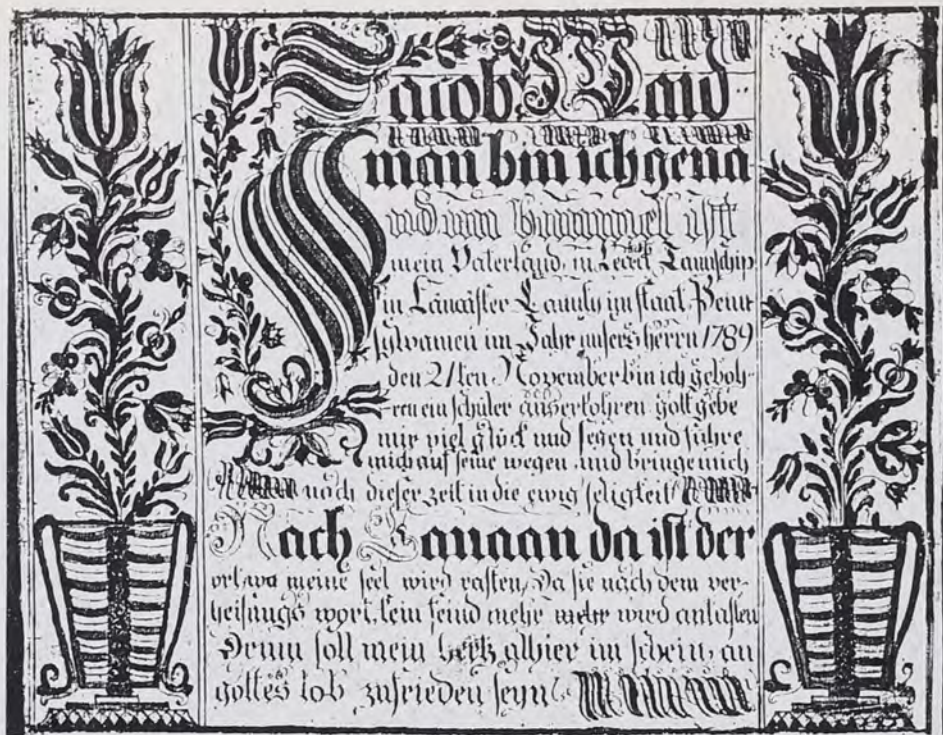 Jacob Weid
man bin ich gena
nd und himmel ist
mein Vaterland, in Taunschip
in Lancaster Caunty im staat Penn
sylvanien im Jahr unsers herrn 1789
den 21ten November bin ich geboh-
ren ein schüler außerkohren gott gebe
mir viel glück und segen und führe
mich auf seine wegen und bringe mich
nach dieser zeit in die ewig seligkeit
Nach Canaan da ist der
ort wo meine seel wird rasten, Da sie nach dem ver-
heisungs wort, kein feind mehr mehr wird antasten
Drum soll mein hertz alhier im schein, an
gottes lob zufrieden seyn